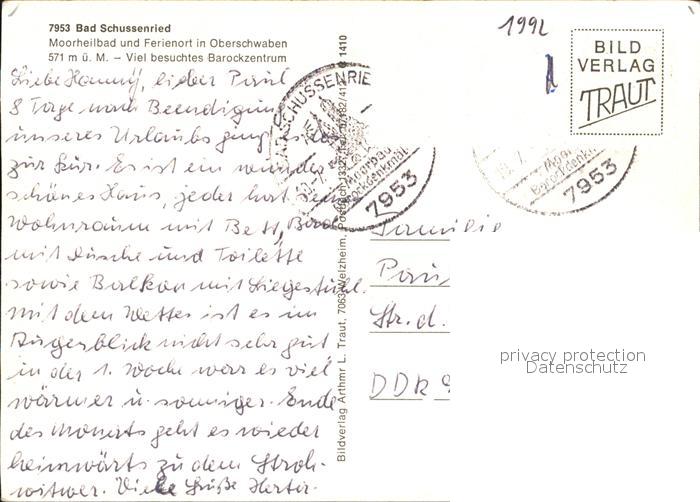 7953 Bad Schussenried
Moorheilbad und Ferienort in Oberschwaben
571 m ü. M. – Viel besuchtes Barockzentrum
1992
BILD
VERLAG
TRAUT
Liebe Hanny, lieber Paul
8 Tage nach Beendigung
unseres Urlaubs ging
zur Kur. Es ist ein wunder
schönes Haus, jeder hat seine
Wohnraum mit Bett, Bad
mit Dusche und Toilette
sowie Balkon mit Liegestuhl.
mit dem Wetter ist es im
Augenblick nicht sehr gut,
in der 1. Woche war es viel
wärmer u. sonniger. Ende
des Monats geht es wieder
heimwärts zu dem Stroh-
witwer. Viele Grüße Herta.
Bildverlag Arthmr L. Traut, 7063 Welzheim, Postfach 1332
1410
BAD SCHUSSENRIED
Moorbad
Barockdenkmal
7953
Moor
Barockdenkm
7953
Familie
Pau
Str. d.
DDR 9
privacy protection
Datenschutz